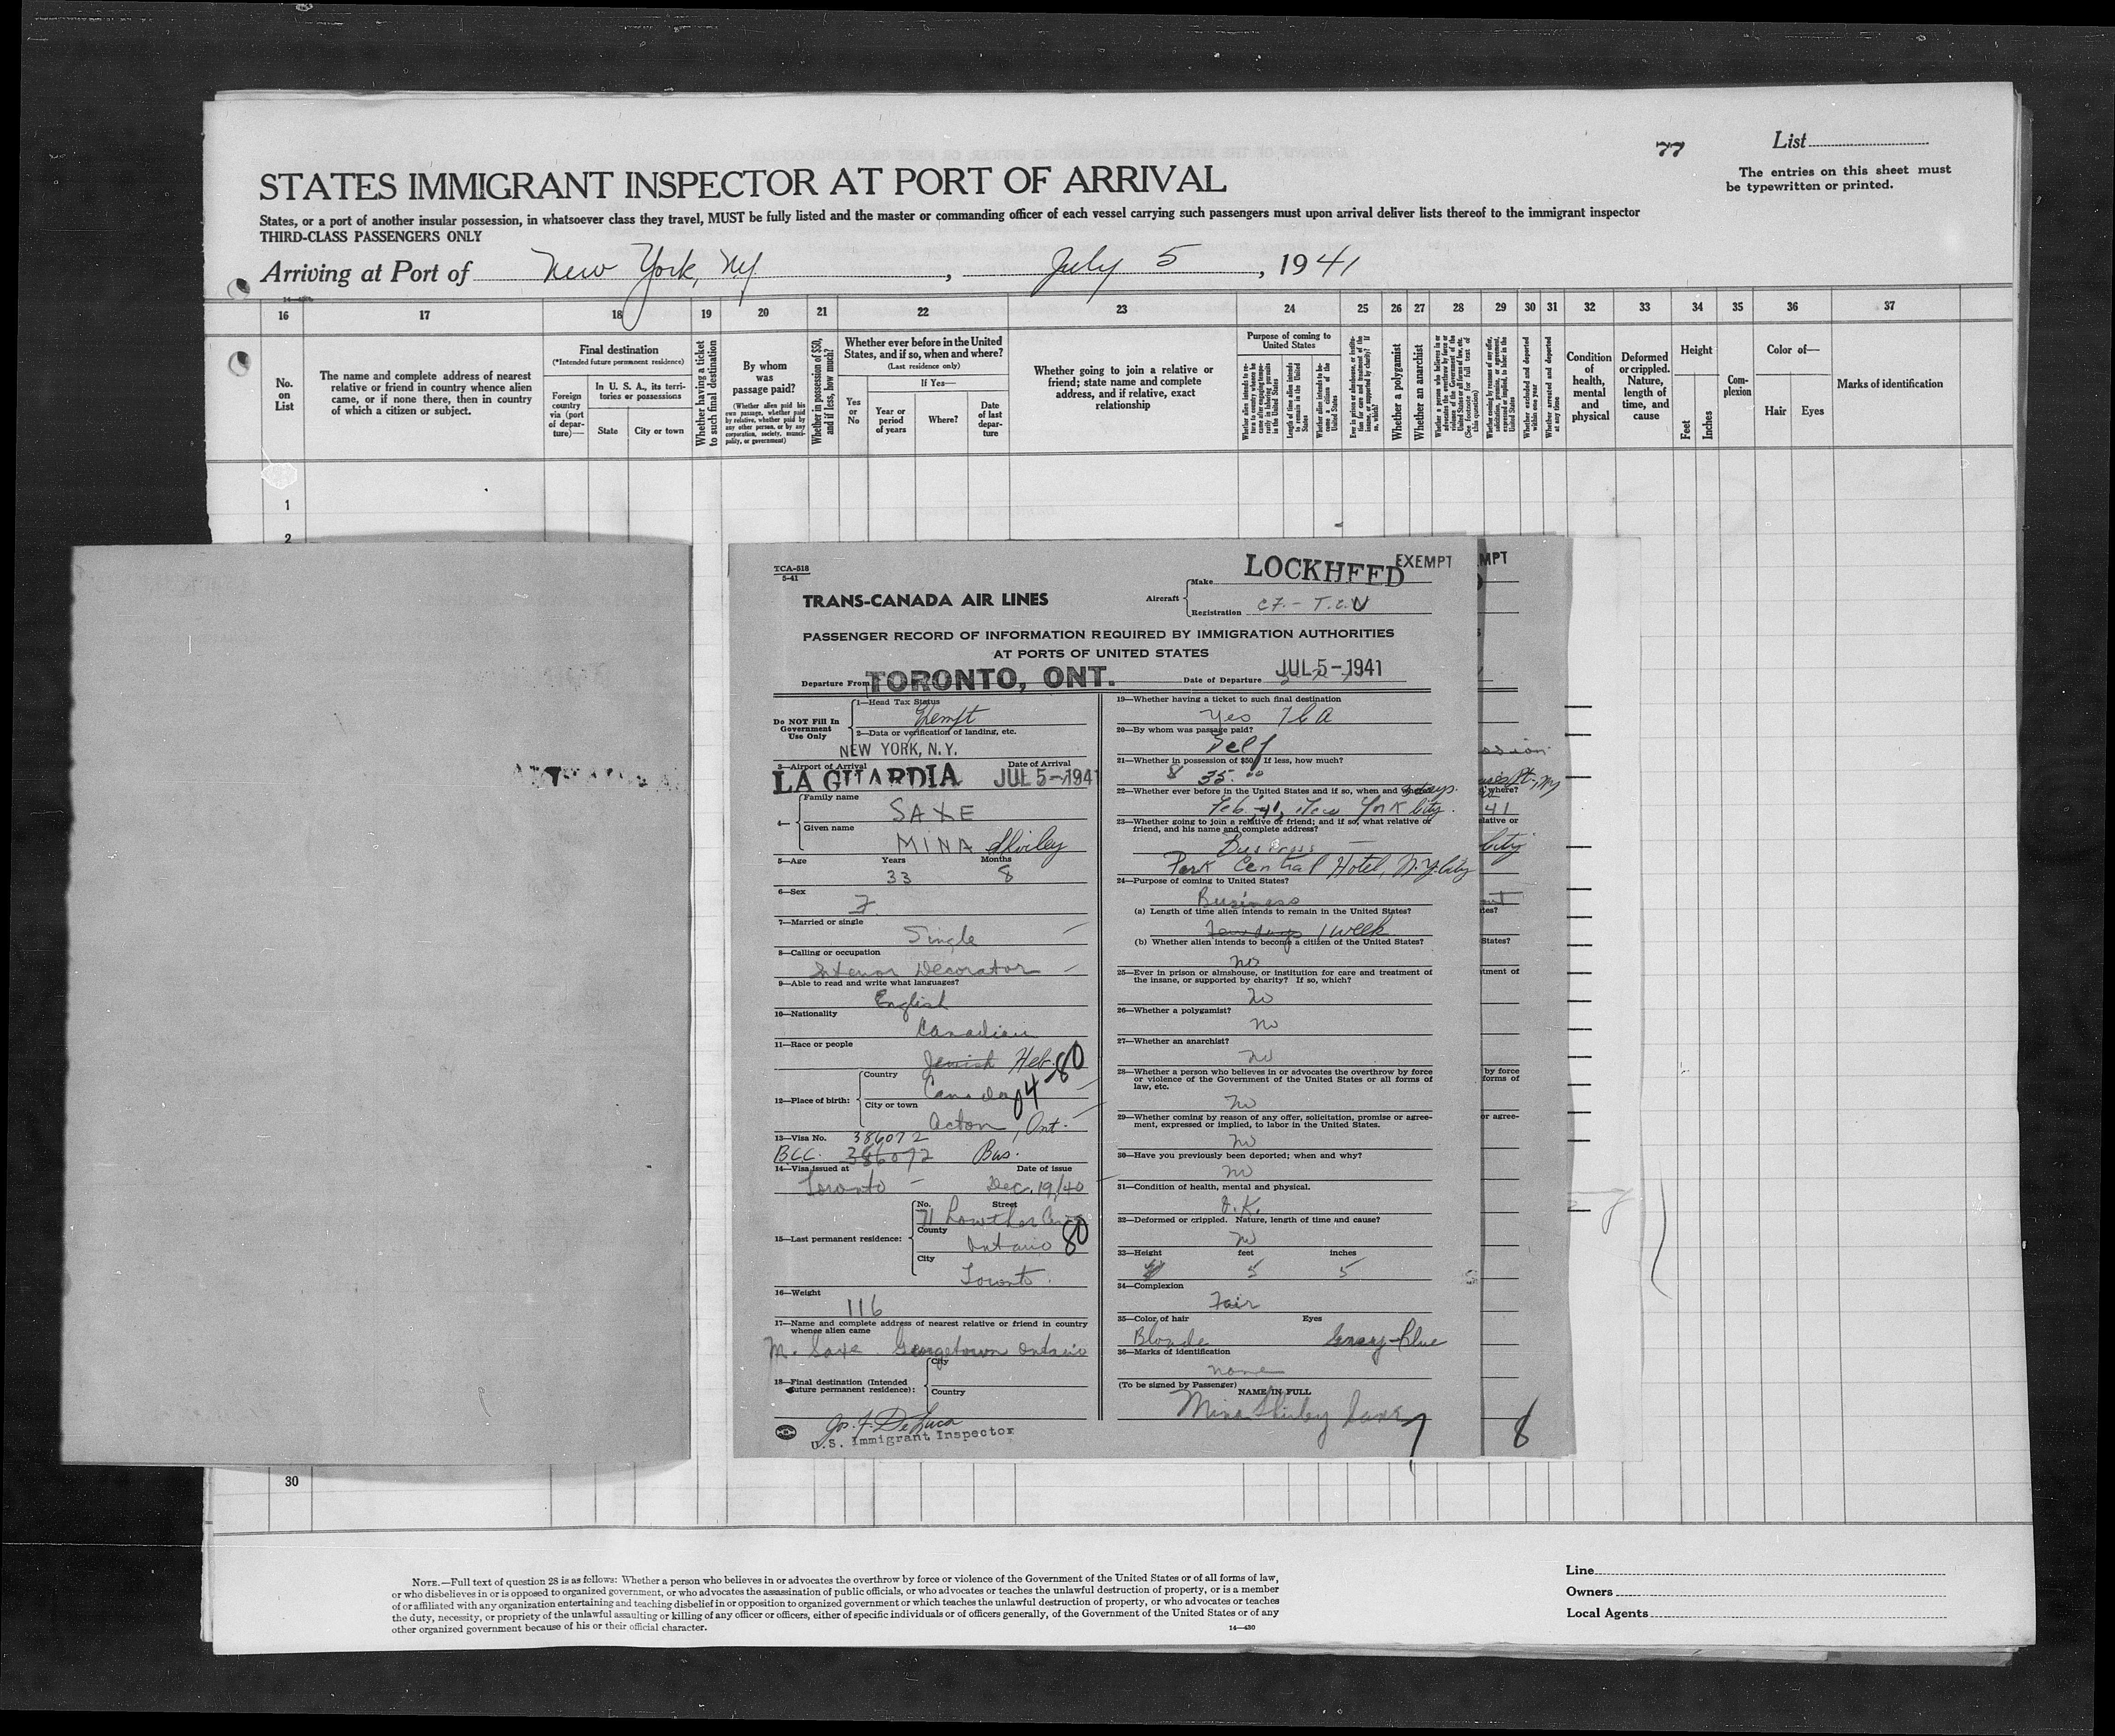 77
List
The entries on this sheet must
be typewritten or printed.
STATES IMMIGRANT INSPECTOR AT PORT OF ARRIVAL
States, or a port of another insular possession, in whatsoever class they travel, MUST be fully listed and the master or commanding officer of each vessel carrying such passengers must upon arrival deliver lists thereof to the immigrant inspector
THIRD-CLASS PASSENGERS ONLY
Arriving at Port of New York, NY, July 5, 1941
16 17 18 19 20 21 22 23 24 25 26 27 28 29 30 31 32 33 34 35 36 37
No.
on
List
The name and complete address of nearest
relative or friend in country whence alien
came, or if none there, then in country
of which a citizen or subject.
Final destination
(*Intended future permanent residence)
Foreign
country
via (port
of depar-
ture)—
In U. S. A., its terri-
tories or possessions
State
City or town
Whether having a ticket
to such final destination
By whom
was
passage paid?
(Whether alien paid his
own passage, whether paid
by relative, whether paid by
any other person, or by any
corporation, society, munici-
pality, or government)
Whether in possession of $50,
and if less, how much?
Whether ever before in the United
States, and if so, when and where?
(Last residence only)
If Yes—
Yes
or
No
Year or
period
of years
Where?
Date
of last
depar-
ture
Whether going to join a relative or
friend; state name and complete
address, and if relative, exact
relationship
Purpose of coming to
United States
Length of time alien intends
to remain in the United
States
Whether alien intends to be-
come a citizen of the
United States
Whether a polygamist
Whether an anarchist
Whether arrested and deported
at any time
Condition
of
health,
mental
and
physical
Deformed
or crippled.
Nature,
length of
time, and
cause
Height
Feet
Inches
Com-
plexion
Color of—
Hair
Eyes
Marks of identification
1
2
TCA-518
5-41
TRANS-CANADA AIR LINES
Aircraft
Make LOCKHEED
EXEMPT
Registration CF.- T.C.N
PASSENGER RECORD OF INFORMATION REQUIRED BY IMMIGRATION AUTHORITIES
AT PORTS OF UNITED STATES
Departure From TORONTO, ONT. Date of Departure JUL 5-1941
Do NOT Fill In
Government
Use Only
1—Head Tax Status
Exempt
2—Data or verification of landing, etc.
NEW YORK, N.Y.
3—Airport of Arrival Date of Arrival
LA GUARDIA JUL 5-1941
4— Family name
SAXE
Given name
MINA Shirley
5—Age Years Months
33 8
6—Sex
F.
7—Married or single
Single
8—Calling or occupation
Interior Decorator
9—Able to read and write what languages?
English
10—Nationality
Canadian
11—Race or people
Jewish Heb.
12—Place of birth: Country
Canada
City or town
Acton, Ont.
13—Visa No. 386072
BCC. 386072 Bus.
14—Visa issued at Date of issue
Toronto Dec. 19/40
15—Last permanent residence: No. Street
71 Lowther Ave
County
Ontario 80
City
Toronto.
16—Weight
116
17—Name and complete address of nearest relative or friend in country
whence alien came
M. Saxe. Georgetown Ontario
18—Final destination (Intended
future permanent residence): City
Country
Jos. F. De Luca
U.S. Immigrant Inspector
19—Whether having a ticket to such final destination
Yes TCA
20—By whom was passage paid?
Self
21—Whether in possession of $50? If less, how much?
35.00
22—Whether ever before in the United States and if so, when and where?
Feb '41, New York City.
23—Whether going to join a relative or friend; and if so, what relative or
friend, and his name and complete address?
Business
Park Central Hotel, N.Y. City
24—Purpose of coming to United States?
Business
(a) Length of time alien intends to remain in the United States?
1 week
(b) Whether alien intends to become a citizen of the United States?
no
25—Ever in prison or almshouse, or institution for care and treatment of
the insane, or supported by charity? If so, which?
No
26—Whether a polygamist?
no
27—Whether an anarchist?
no
28—Whether a person who believes in or advocates the overthrow by force
or violence of the Government of the United States or all forms of
law, etc.
No
29—Whether coming by reason of any offer, solicitation, promise or agree-
ment, expressed or implied, to labor in the United States.
no
30—Have you previously been deported; when and why?
no
31—Condition of health, mental and physical.
O.K.
32—Deformed or crippled. Nature, length of time and cause?
no
33—Height feet inches
5 5
34—Complexion
Fair
35—Color of hair Eyes
Blonde Gray-blue
36—Marks of identification
none
(To be signed by Passenger)
NAME IN FULL
Mina Shirley Saxe
7
8
30
NOTE.—Full text of question 28 is as follows: Whether a person who believes in or advocates the overthrow by force or violence of the Government of the United States or of all forms of law,
or who disbelieves in or is opposed to organized government, or who advocates the assassination of public officials, or who advocates or teaches the unlawful destruction of property, or is a member
of or affiliated with any organization entertaining and teaching disbelief in or opposition to organized government or which teaches the unlawful destruction of property, or who advocates or teaches
the duty, necessity, or propriety of the unlawful assaulting or killing of any officer or officers, either of specific individuals or of officers generally, of the Government of the United States or of any
other organized government because of his or their official character.
14—430
Line
Owners
Local Agents